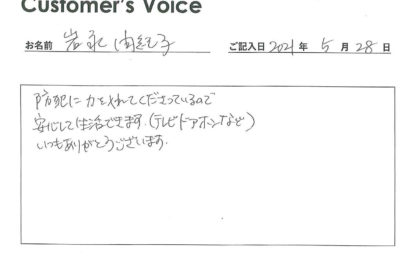 Customer's Voice
お名前 岩永 由紀子 ご記入日 2021 年 5 月 28 日
防犯に力を入れてくださっているので
安心して生活できます。(テレビドアホンなど)
いつもありがとうございます。